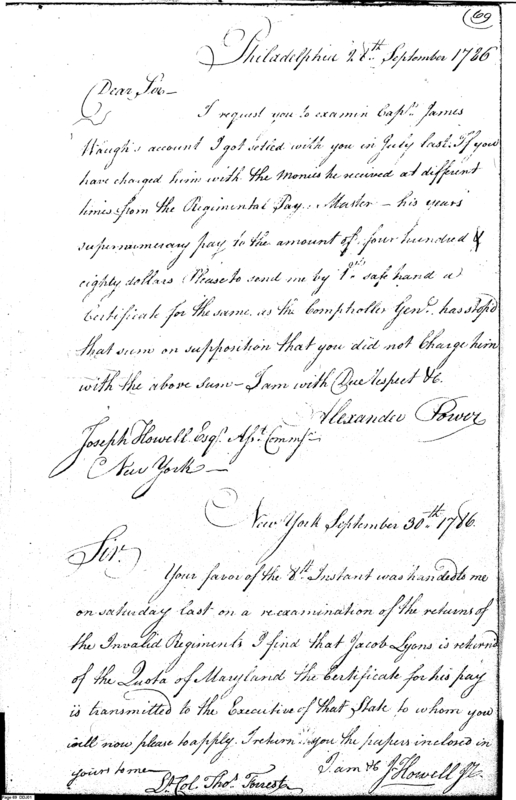 69
Philadelphia 28th September 1786
Dear Sir
I request you to examin Capt. James
Waugh's account I got setled with you in July last. If you
have charged him with the Monies he received at different
times from the Regimental Pay-Master - his years
supernumerary pay to the amount of four hundred &
eighty dollars Please to send me by 1st safe hand a
Certificate for the same, as the Comptroller Genl. has stop'd
that sum on supposition that you did not Charge him
with the above sum - I am with Due respect &c.
Alexander Power
Joseph Howell Esqr. Asst. Commr.
New York
New York September 30th 1786.
Sir.
Your favor of the 8th Instant was handed to me
on saturday last on a re-examination of the returns of
the Invalid Regiments I find that Jacob Lyons is returnd
of the Quota of Maryland the Certificate for his pay
is transmitted to the Executive of that State to whom you
will now please to apply. I return you the papers inclosed in
yours to me
I am &c J Howell Jr.
Lt Col. Thos. Forrest